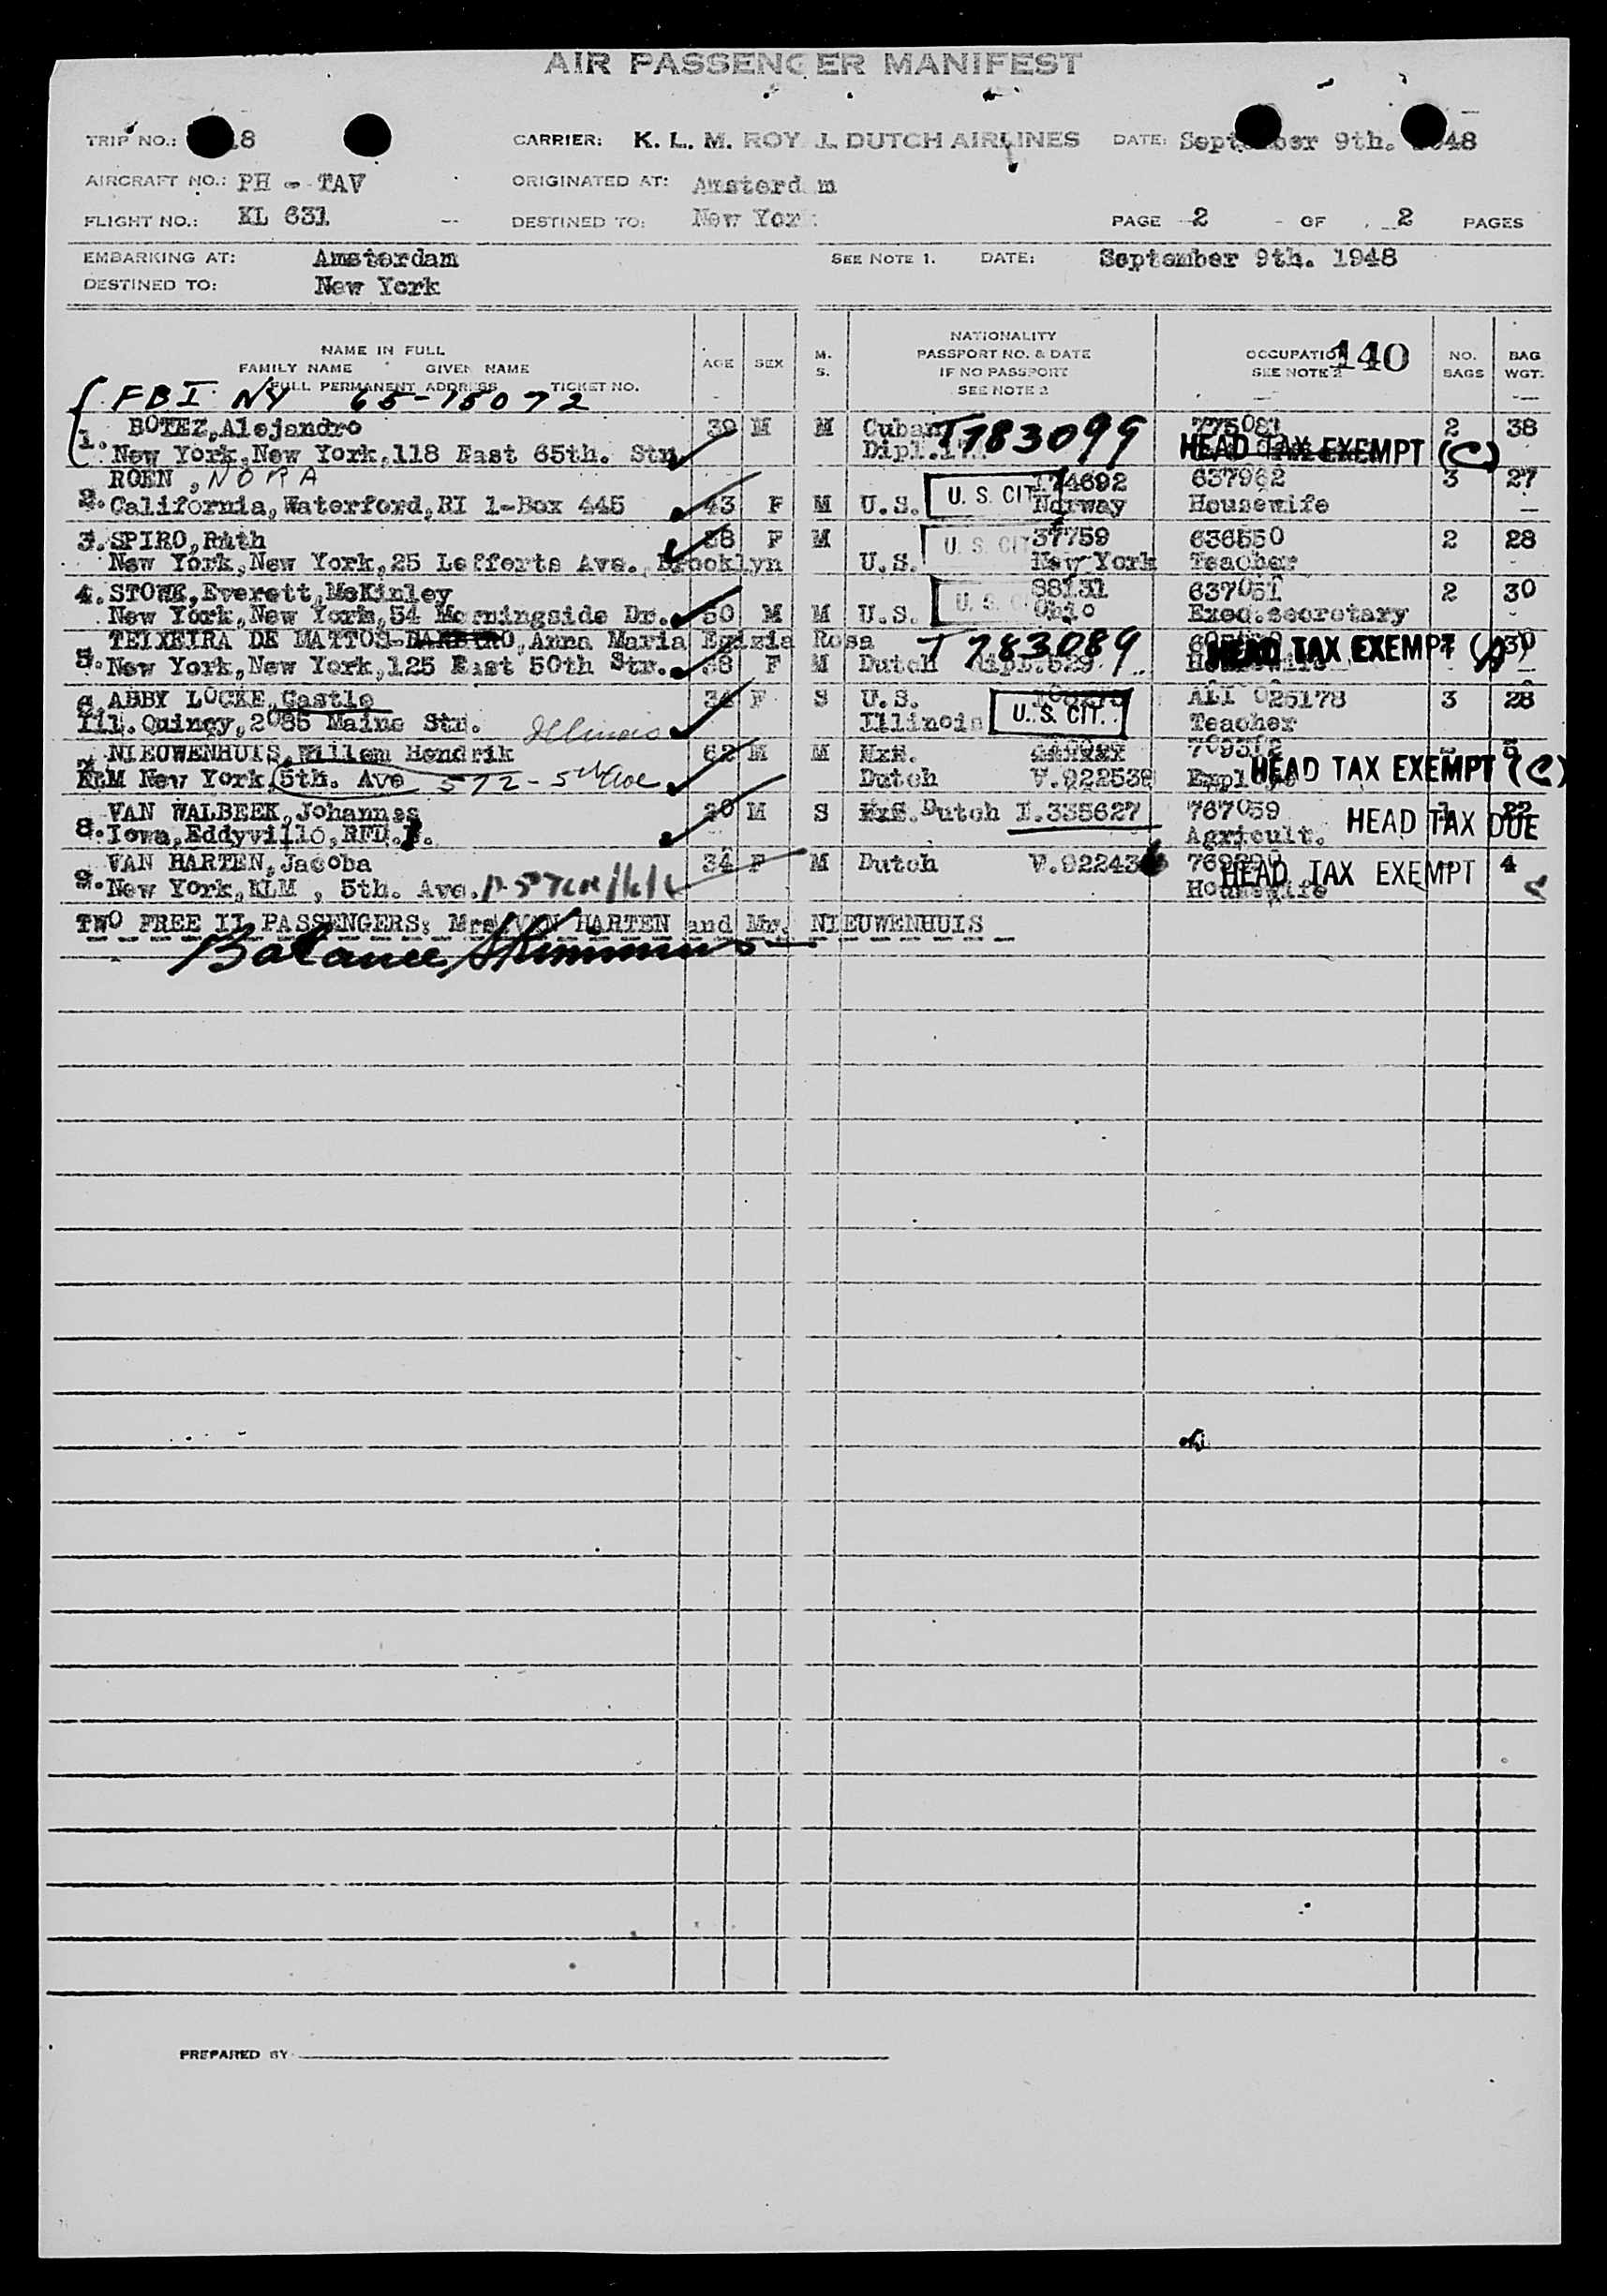 AIR PASSENGER MANIFEST
TRIP NO.: 8 CARRIER: K. L. M. ROYAL DUTCH AIRLINES DATE: September 9th. 1948
AIRCRAFT NO.: PH - TAV ORIGINATED AT: Amsterdam
FLIGHT NO.: KL 631 -- DESTINED TO: New York PAGE 2 OF 2 PAGES
EMBARKING AT: Amsterdam SEE NOTE 1. DATE: September 9th. 1948
DESTINED TO: New York
NAME IN FULL
FAMILY NAME GIVEN NAME
FULL PERMANENT ADDRESS TICKET NO.
AGE SEX M. S.
NATIONALITY
PASSPORT NO. & DATE
IF NO PASSPORT
SEE NOTE 2
OCCUPATION 140
SEE NOTE 2
NO. BAGS
BAG WGT.
FBI NY 65-15072
1. BOTEZ, Alejandro 39 M M Cuban T783099 775081 2 38
New York, New York, 118 East 65th. Str. Dipl. HEAD TAX EXEMPT (C)
ROEN, NORA 174692 637962 3 27
2. California, Waterford, RI 1-Box 445 43 F M U.S. U. S. CIT. Norway Housewife
3. SPIRO, Ruth 28 F M U. S. CIT 37759 636550 2 28
New York, New York, 25 Lefferts Ave. Brooklyn U.S. New York Teacher
4. STOWE, Everett, McKinley 88131 637051 2 30
New York, New York, 54 Morningside Dr. 50 M M U.S. U. S. Ohio Exec. secretary
TEIXEIRA DE MATTOS- Anna Maria Egizia Rosa T 783089 HEAD TAX EXEMPT (A) 30
5. New York, New York, 125 East 50th Str. 38 F M Dutch dipl. 529 Housewife
6. ABBY LOCKE, Castle 34 F S U.S. ALI 025178 3 28
Ill. Quincy, 2085 Maine Str. Illinois Illinois U. S. CIT. Teacher
7. NIEUWENHUIS, Willem Hendrik 62 M M 5
KLM New York, 5th. Ave 572 - 5th Ave Dutch V.922538 Employe HEAD TAX EXEMPT (C)
VAN WALBEEK, Johannes M S Dutch I.335627 767059 22
8. Iowa, Eddyville, RFD. Agricult. HEAD TAX DUE
VAN HARTEN, Jacoba 34 F M Dutch 4
9. New York, KLM, 5th. Ave. Housewife HEAD TAX EXEMPT
TWO FREE II PASSENGERS: Mrs VAN HARTEN and Mr. NIEUWENHUIS
PREPARED BY